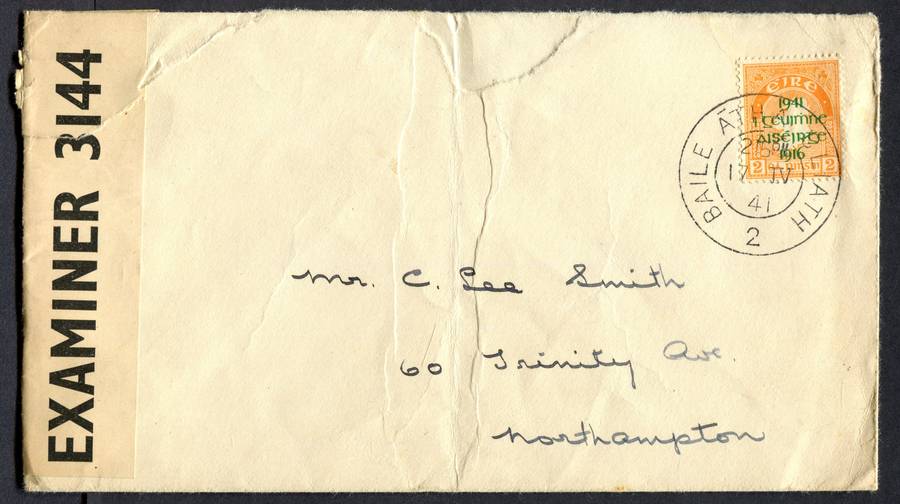 EXAMINER 3144
ÉIRE
1941
i gcuimhne
aiséirghe
1916
2 2
BAILE ÁTHA CLIATH
17 IV
41
2
Mr. C. Lee Smith
60 Trinity Ave.
Northampton